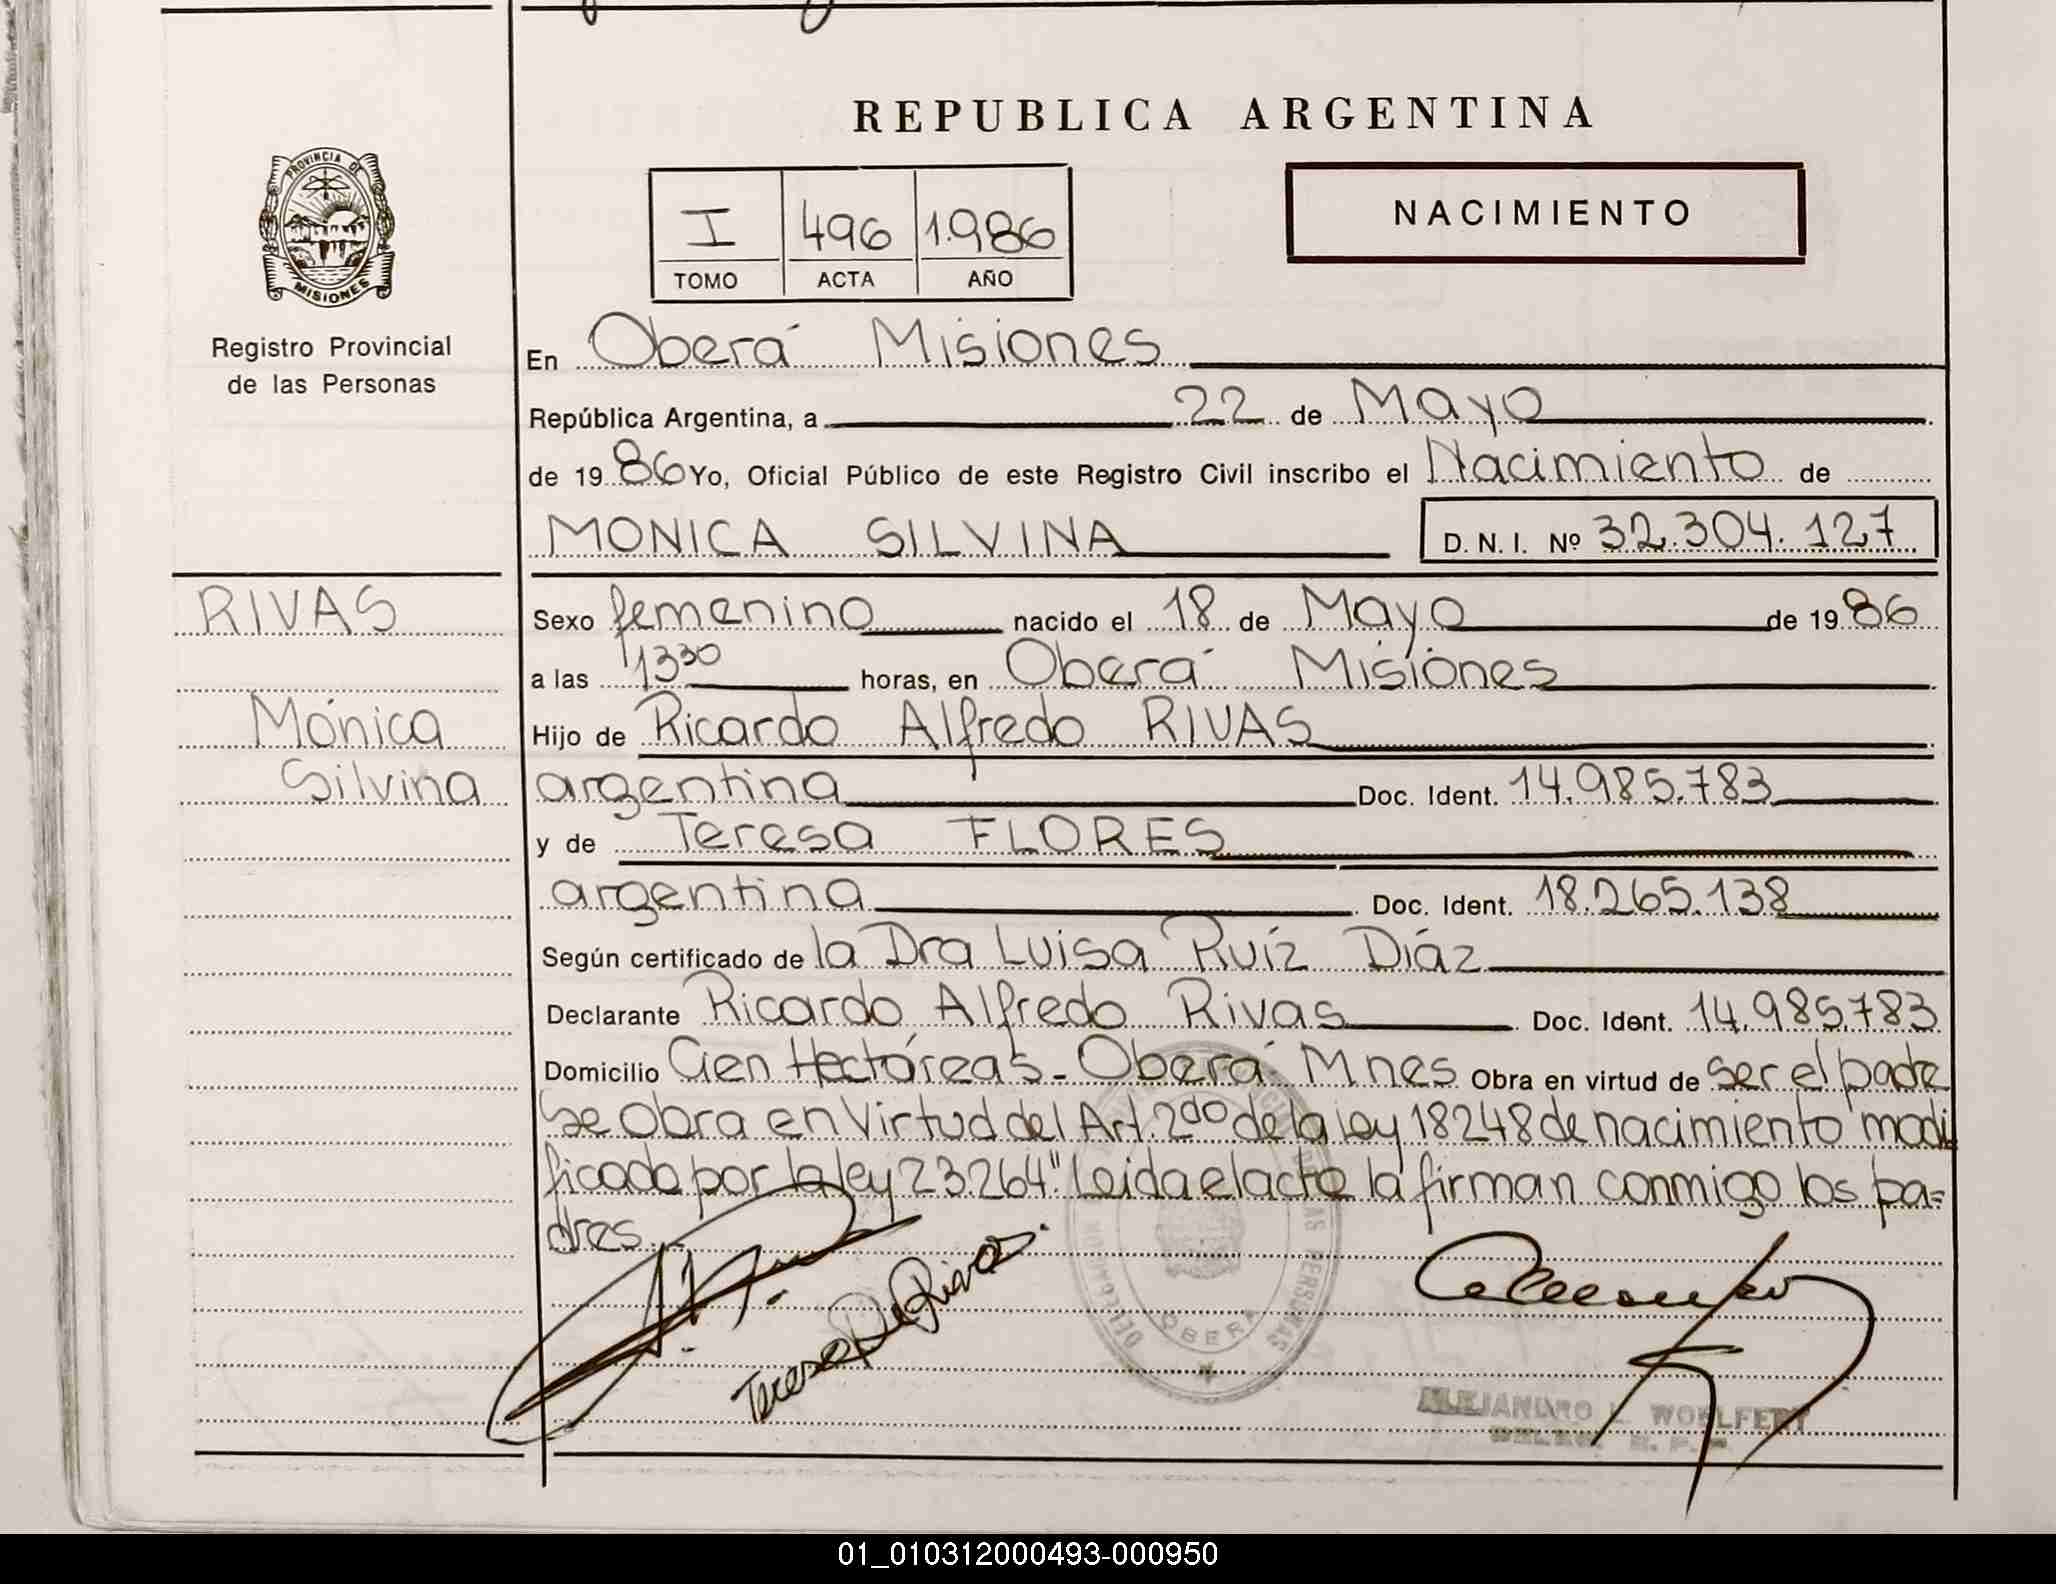 REPUBLICA ARGENTINA
PROVINCIA DE
MISIONES
Registro Provincial
de las Personas
I 496 1.986
TOMO ACTA AÑO
NACIMIENTO
En Oberá Misiones
República Argentina, a 22 de Mayo
de 19 86 Yo, Oficial Público de este Registro Civil inscribo el Nacimiento de
MONICA SILVINA D. N. I. Nº 32.304.127
RIVAS
Mónica
Silvina
Sexo femenino nacido el 18 de Mayo de 19 86
a las 13 30 horas, en Oberá Misiones
Hijo de Ricardo Alfredo RIVAS
argentina Doc. Ident. 14.985.783
y de Teresa FLORES
argentina Doc. Ident. 18.265.138
Según certificado de la Dra Luisa Ruíz Díáz
Declarante Ricardo Alfredo Rivas Doc. Ident. 14.985.783
Domicilio Cien Hectáreas - Oberá Mnes Obra en virtud de ser el padre
Se Obra en Virtud del Art. 2do de la ley 18248 de nacimiento modi
ficado por la ley 23.264" Leida el acto la firman conmigo los pa=
dres.
Teresa De Rivas.
DELEGACION
DE LAS PERSONAS
OBERA
ALEJANDRO L. WOELFERT
01_010312000493-000950